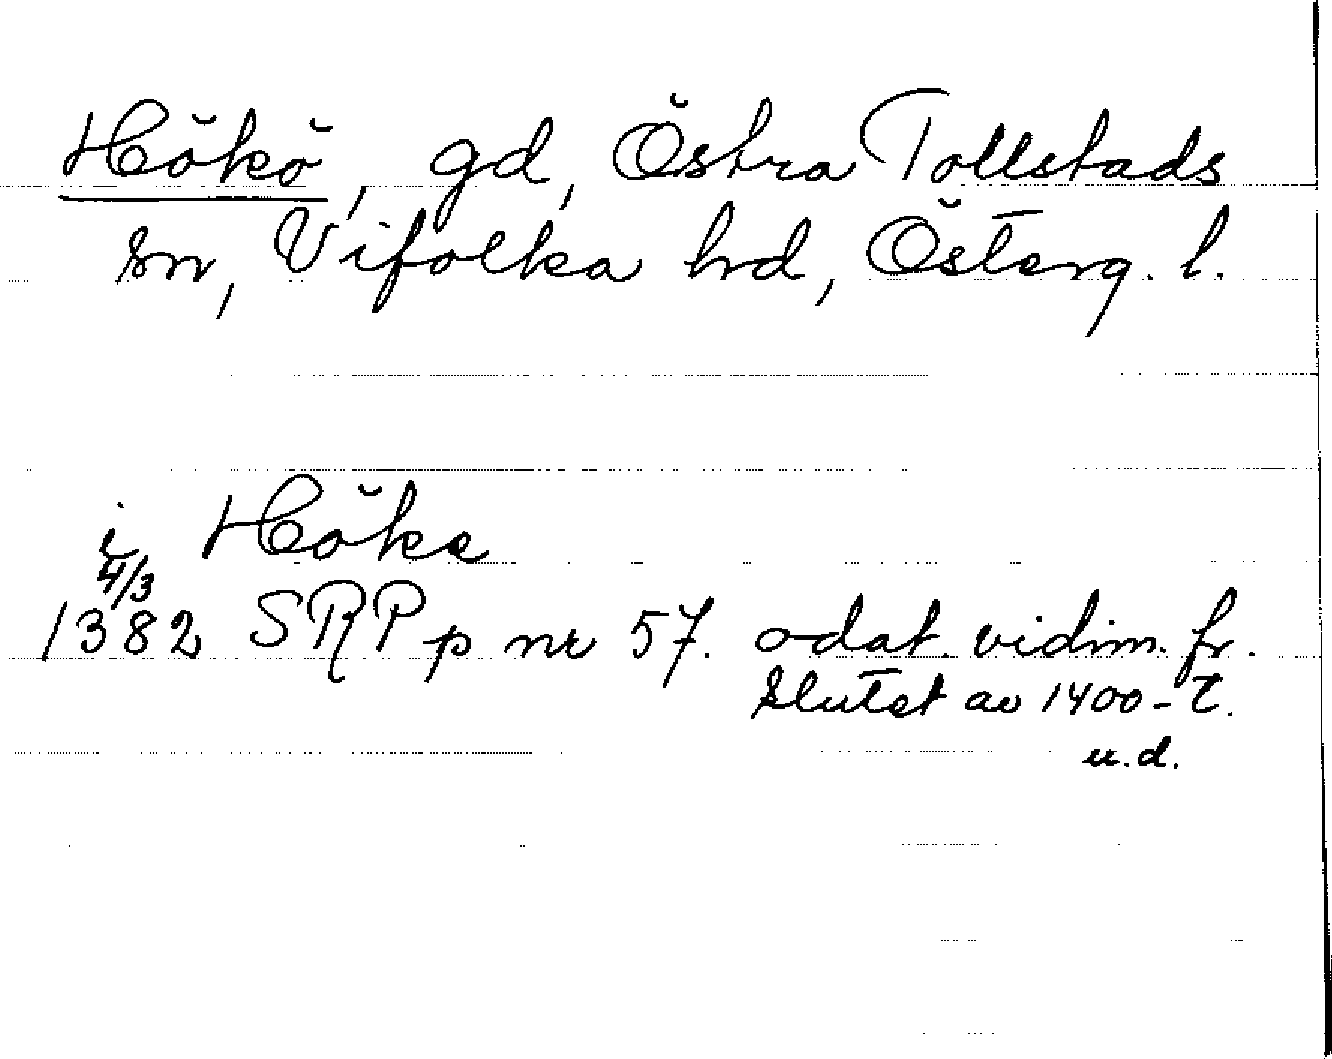 Hökö, gd, Östra Tollstads
sn, Vifolka hd, Österg. l.
i Höke
4/3
1382 SRPp nr 57. odat. vidim. fr.
slutet av 1400-t.
u.d.